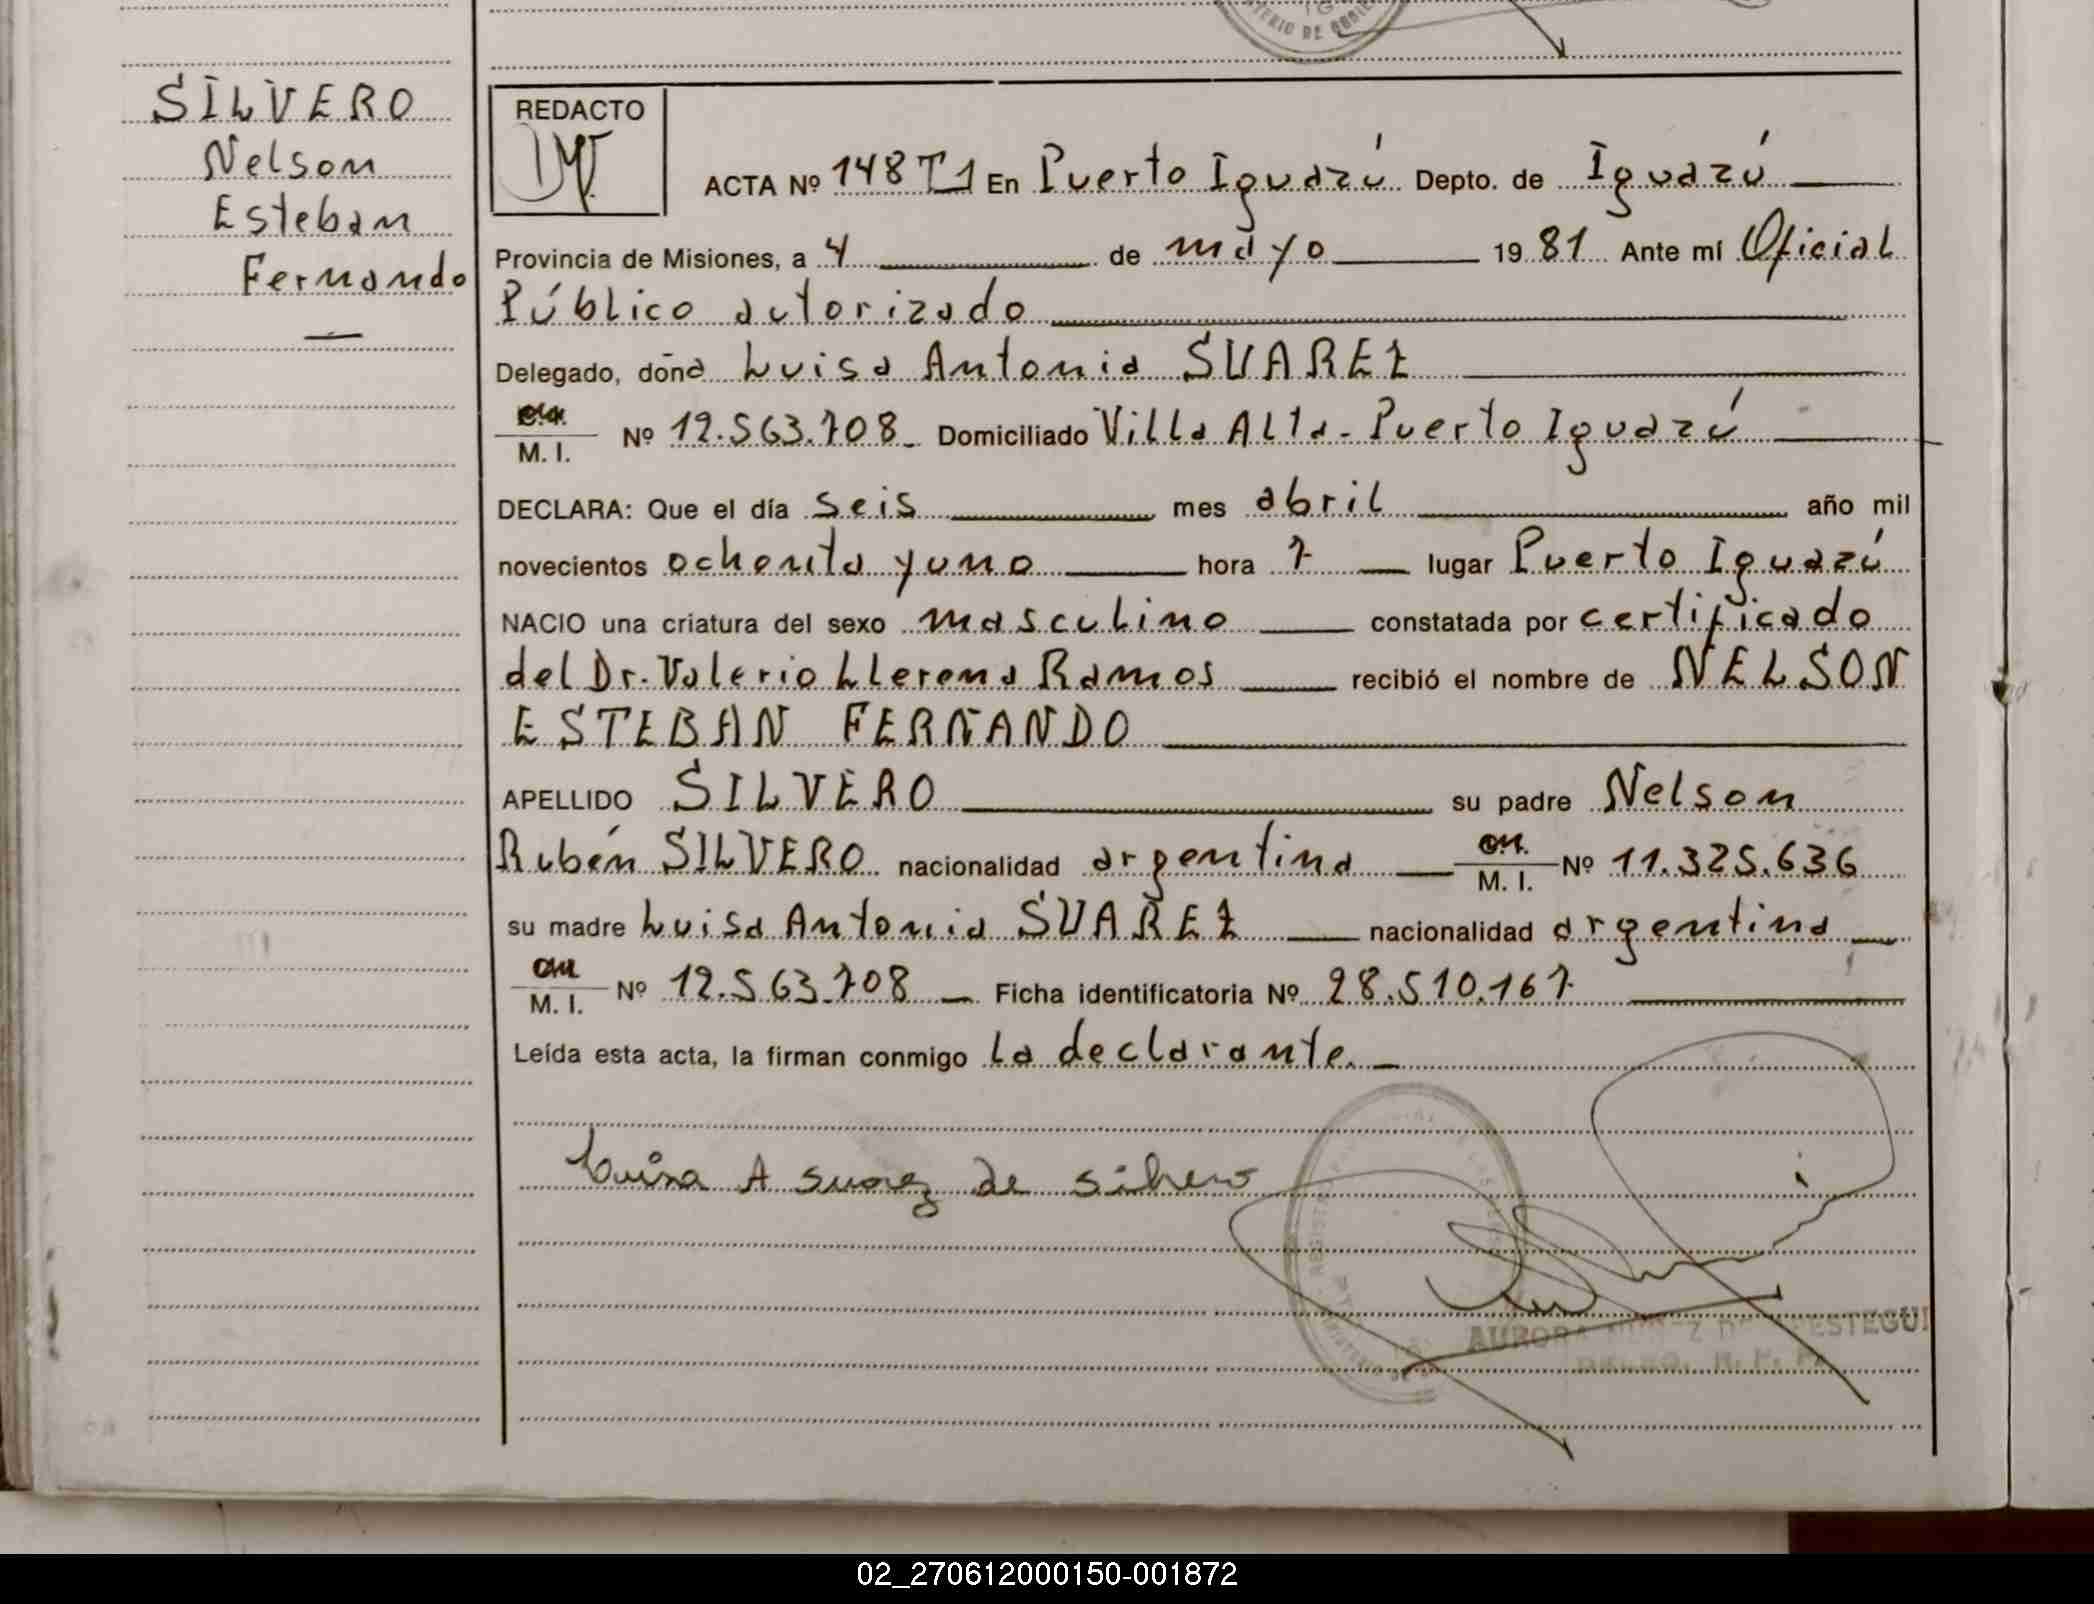 TERIO DE GOBIE
SILVERO
Nelson
Esteban
Fernando
REDACTO
ACTA Nº 148 T1 En Puerto Iguazú Depto. de Iguazú
Provincia de Misiones, a 4 de mayo 1981 Ante mí Oficial
Público autorizado
Delegado, doña Luisa Antonia SUAREZ
M. I. Nº 12.563.708 Domiciliado Villa Alta - Puerto Iguazú
DECLARA: Que el día seis mes abril año mil
novecientos ochenta y uno hora 7 lugar Puerto Iguazú
NACIO una criatura del sexo masculino constatada por certificado
del Dr. Valerio Llerena Ramos recibió el nombre de NELSON
ESTEBAN FERNANDO
APELLIDO SILVERO su padre Nelson
Rubén SILVERO nacionalidad argentina M. I. Nº 11.325.636
su madre Luisa Antonia SUAREZ nacionalidad argentina
M. I. Nº 12.563.708 Ficha identificatoria Nº 28.510.167
Leída esta acta, la firman conmigo la declarante.
Luisa A Suarez de Silvero
AURORA
02_270612000150-001872